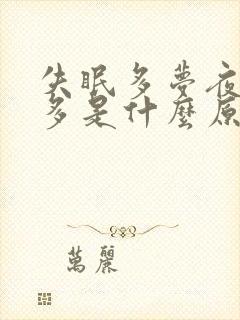 失眠多夢夜
多是什麼原
萬麗